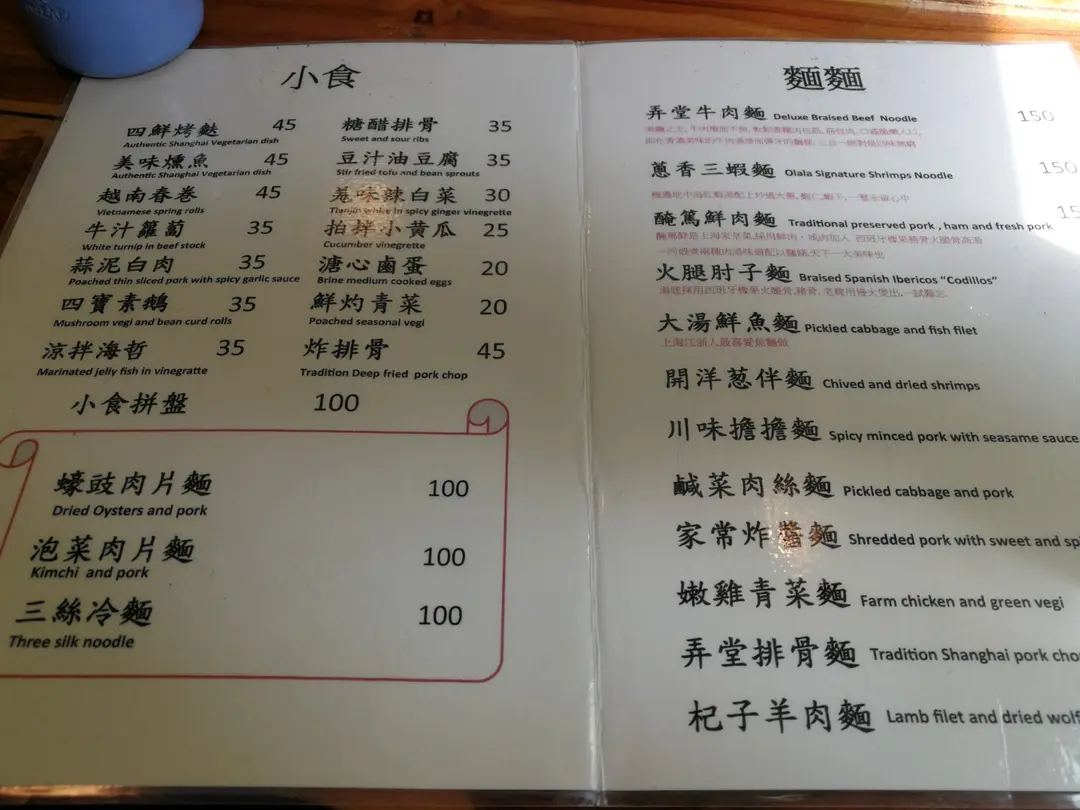 小食
四鮮烤麩 45
Authentic Shanghai Vegetarian dish
美味燻魚 45
Authentic Shanghai Vegetarian dish
越南春卷 45
Vietnamese spring rolls
牛汁蘿蔔 35
White turnip in beef stock
蒜泥白肉 35
Poached thin sliced pork with spicy garlic sauce
四寶素鵝 35
Mushroom vegi and bean curd rolls
涼拌海哲 35
Marinated jelly fish in vinegratte
小食拼盤 100
糖醋排骨 35
Sweet and sour ribs
豆汁油豆腐 35
Stir fried tofu and bean sprouts
味辣白菜 30
Tianjin white in spicy ginger vinegrette
拍拌小黄瓜 25
Cucumber vinegrette
溏心鹵蛋 20
Brine medium cooked eggs
鮮灼青菜 20
Poached seasonal vegi
炸排骨 45
Tradition Deep fried pork chop
蠔豉肉片麵 100
Dried Oysters and pork
泡菜肉片麵 100
Kimchi and pork
三絲冷麵 100
Three silk noodle
麵麵
弄堂牛肉麵 Deluxe Braised Beef Noodle 150
蔥香三蝦麵 Olala Signature Shrimps Noodle 150
醃篤鮮肉麵 Traditional preserved pork , ham and fresh pork
火腿肘子麵 Braised Spanish Ibericos “Codillos”
大湯鮮魚麵 Pickled cabbage and fish filet
上海江浙人最喜愛魚麵做
開洋葱伴麵 Chived and dried shrimps
川味擔擔麵 Spicy minced pork with seasame sauce
鹹菜肉絲麵 Pickled cabbage and pork
家常炸醬麵 Shredded pork with sweet and sp
嫩雞青菜麵 Farm chicken and green vegi
弄堂排骨麵 Tradition Shanghai pork cho
杞子羊肉麵 Lamb filet and dried wolf